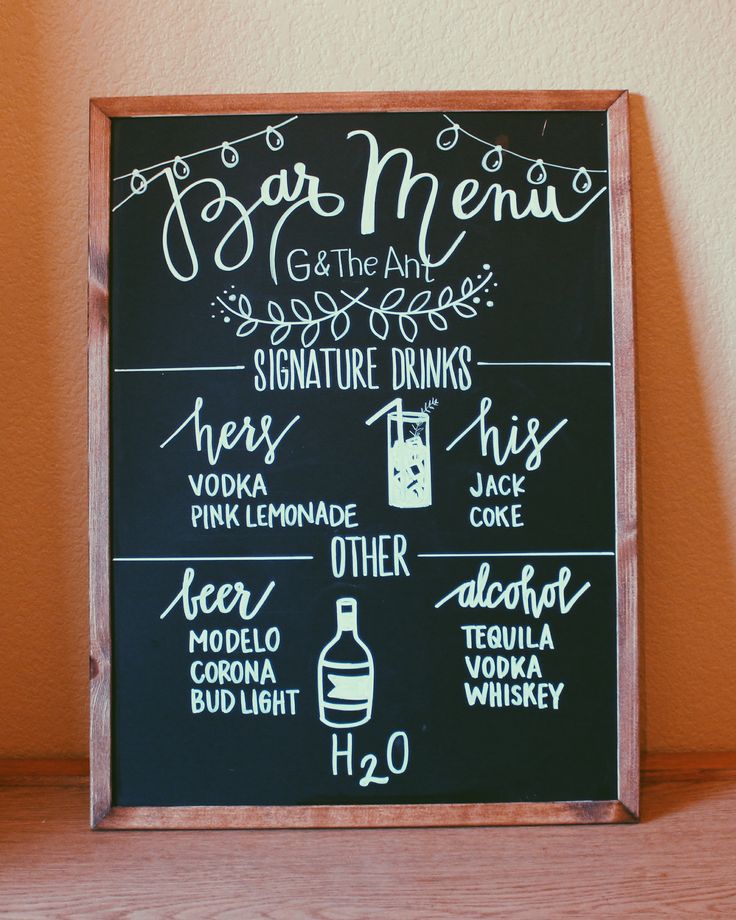 Bar Menu
G & The Ant
SIGNATURE DRINKS
hers
VODKA
PINK LEMONADE
his
JACK
COKE
OTHER
beer
MODELO
CORONA
BUD LIGHT
alcohol
TEQUILA
VODKA
WHISKEY
H2O